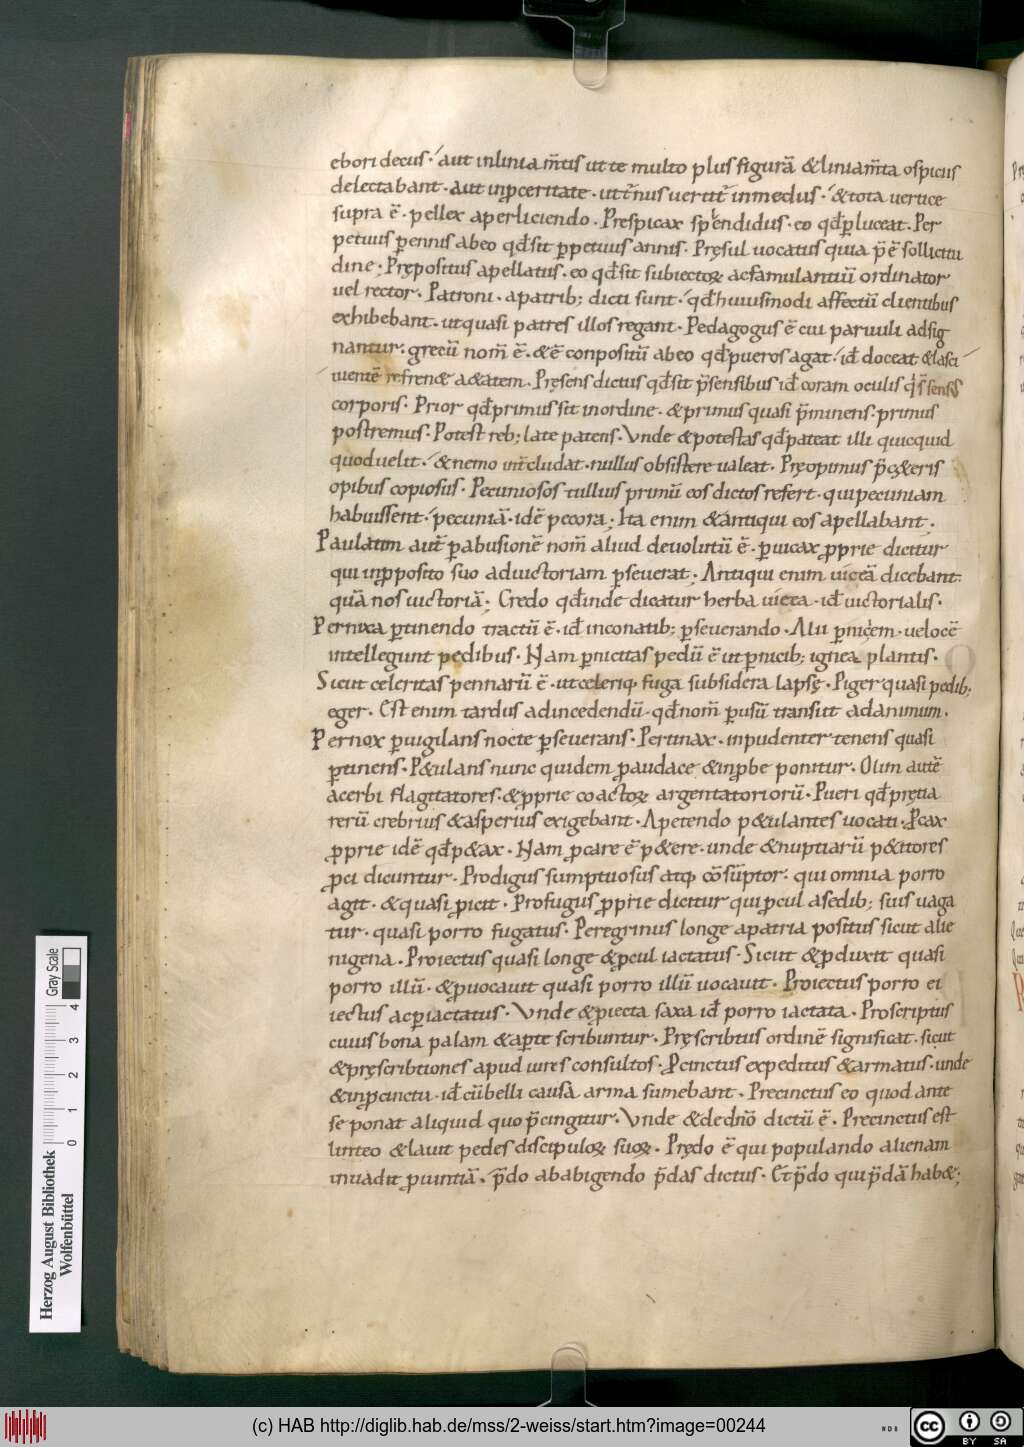 ebori decus · aut inlinia m̅tis ut te multo plus figurā &liniam̅ta ospicus
delectabant · aut inp̱ceritate · ut t̅nus uertit̅ inmedius · &tota uertice
supra ē · pellex aperliciendo · Prespicax splendidus · eo qđ ꝑluceat · Per
petuus ꝑennis abeo qđ sit ꝑpetuus annis · Pręsul uocatus quia p̄ē sollicitu
dine ; Prępositus apellatus · eo qđ sit subiectoꝝ acfamulantiū ordinator
uel rector · Patroni · apatrib; dicti sunt · qđ huiusmodi affectū clientibus
exhibebant · utquasi patres illos regant · Pedagogus ē cui paruuli adsig
nantur · grecū nom̅ ē · &ē conpositū abeo qđ pueros agat · iđ doceat &lasci
uientē refren& a&atem · Pręsens dictus qđ sit p̄sensibus iđ coram oculis
corporis · Prior qđ primus sit inordine · &primus quasi p̄minens · primus
postremus · Potest reb; late patens · Vnde &potestas qđ pateat illi quicquid
quoduelit · &nemo int̅cludat · nullus obsistere ualeat · Pręopimus p̄ c&eris
opibus copiosus · Pecuniosos tullius primū eos dictos refert · qui pecuniam
habuissent · pecuniā · idē pecora ; Ita enim &antiqui eos apellabant ·
Paulatim aut̅ ꝑabusionē nom̅ aliud deuolutū ē · ꝑuicax ꝓprie dicitur
qui inꝓposito suo aduictoriam ꝑseuerat ; Antiqui enim uicęā dicebant ·
quā nos uictoriā ; Credo qđ inde dicatur herba uicta · iđ uictorialis ·
Pernixa ꝑtinendo tractū ē · iđ inconatib; ꝑseuerando · Alii ꝑnicem · uelocē
intellegunt pedibus · Nam ꝑnicitas pedū ē ut ꝑnicib; ignea plantis ·
Sicut celeritas pennarū ē · ut celeriq; fuga subsidera lapsę · Piger quasi pedib;
eger · Est enim tardus adincedendū · qđ nom̅ ꝑusū transiit adanimum ·
Pernox ꝑuigilans nocte ꝑseuerans · Pertinax · inpudenter tenens quasi
ꝑtinens · P&ulans nunc quidem ꝓaudace &inꝓbe ponitur · Olim autē
acerbi flagitatores · &ꝓprie coactoꝝ argentatoriorū · Pueri qđ pręcia
rerū crebrius &asperius exigebant · Apetendo p&ulantes uocati · Ꝓcax
ꝓprie idē qđ p&ax · Nam ꝓcare ē p&ere · unde &nuptiarū p&itores
ꝓci dicuntur · Prodigus sumptuosus atq; cōsūptor · qui omnia porro
agit · &quasi ꝓicit · Profugus ꝓprie dicitur qui ꝓcul asedib; suis uaga
tur · quasi porro fugatus · Peregrinus longe apatria positus sicut alie
nigena · Proiectus quasi longe &ꝓcul iactatus · Sicut &ꝓduxit quasi
porro illū · &ꝓuocauit quasi porro illū uocauit · Proiectus porro ei
iectus acꝑiactatus · Vnde &ꝓiecta saxa iđ porro iactata · Proscriptus
cuius bona palam &aꝑte scribuntur · Pręscribtus ordinē significat · sicut
&pręscribtiones apud iures consultos · Ꝓcinctus expeditus &armatus · unde
&inꝓcinctu · iđ cū belli causa arma sumebant · Precinctus eo quod ante
se ponat aliquid quo p̄cingitur · Vnde &dedn̅o dictū ē · Precinctus est
linteo &lauit pedes discipuloꝝ suoꝝ · Prędo ē qui populando alienam
inuadit ꝓuintiā · p̄do ababigendo p̄das dictus · Et p̄do qui p̄dā hab& ;
Herzog August Bibliothek
Wolfenbüttel
0 1 2 3 4
Gray Scale
(c) HAB http://diglib.hab.de/mss/2-weiss/start.htm?image=00244
cc BY SA